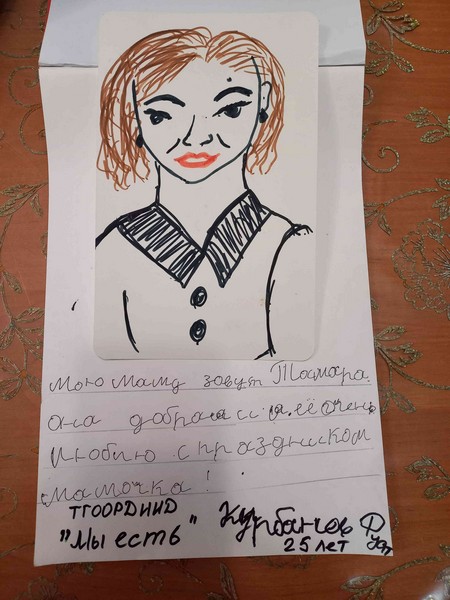 Мою Маму зовут Тамара.
она добрая и я её очень
люблю с праздником
мамочка!
ТГООРДИИД
"Мы есть" Курбанов
25 лет